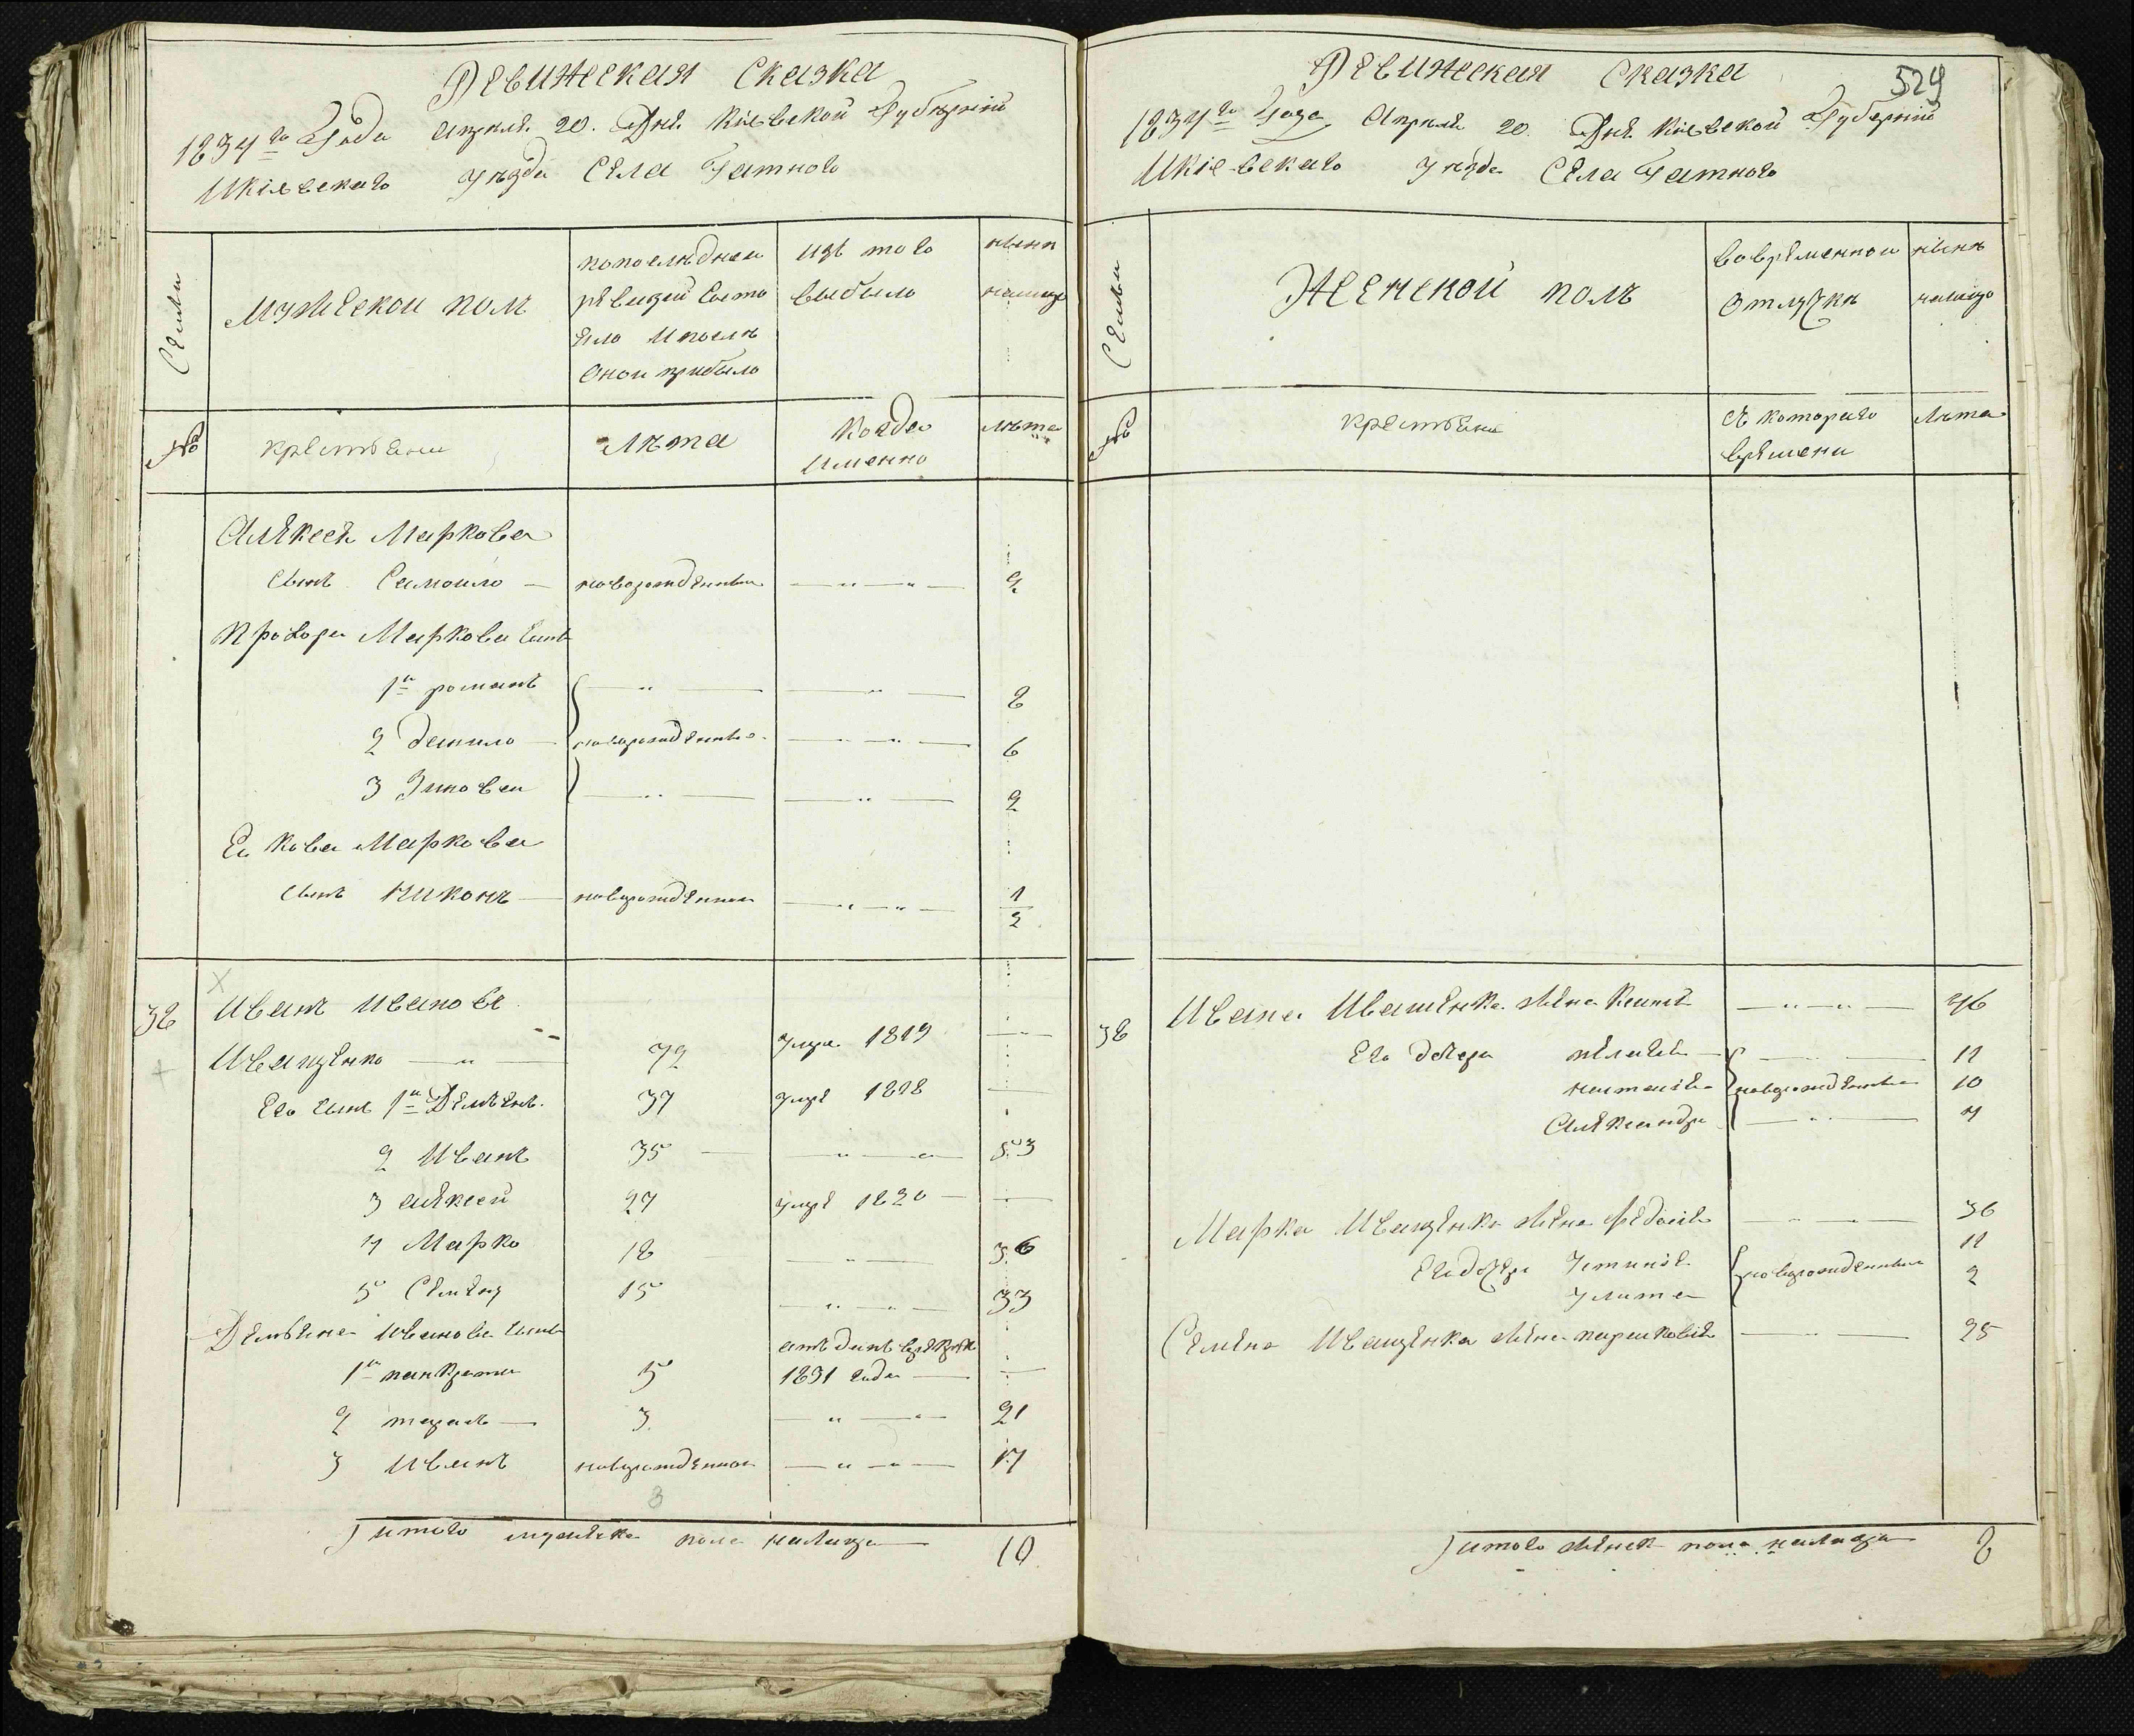 Ревижская Сказка
1834го Года Апреля 20. Дня Кіевской Губерніи
Икіевскаго Уезда Села Гатного
Семьи
Мужеской полъ
попоследней
ревизіи состо
яло ипосле
оной прибыло
изъ того
выбыло
ныне
налицо
№
крестьяни
Лета
Когда
именно
Лета
Алексея Маркова
сынъ Самоило — новорожденный — " — " — 2
Прохора Маркова сыны
1й романъ — " — — " — 8
2 данило — новорожденные — " — 6
3 Зиновей — " — — " — 2
Якова Маркова
сынъ никонъ — новорожденной — " — " — 1/2
38 Иванъ Иванов
Иващенко — " — 72 Умре 1819 — " —
Его сынъ 1й Демьянъ 37 умре 1828 —
2 Иванъ 35 — " — 53
3 алексей 27 умре 1820 — —
4 Марко 18 — " — 36
5 Семенъ 15 — " — " — 33
Демьяна Иванова сыны
1й панкрати 5 отданъ врекруты
1831 года — —
2 тарасъ — 3 — " — 21
3 Иванъ новорожденной — " — 17
3
Итого мужеска пола налицо — 10
524
Ревижская Сказка
1834го Года Апреля 20. Дня Кіевской Губерніи
Икіевскаго Уезда Села Гатного
Семьи
Женской полъ
вовременной
отлучке
ныне
налицо
№
крестьяни
съ котораго
времени
Лета
38 Ивана Иващенка жена — " — " — 46
Его дочери — " — 11
настасія новорожденные 10
Александра — " — 4
Марка Иващенка жена федосія — " — 36
Его дочери Устинія новорожденные 11
Улита 2
Семена Иващенка жена парасковія — " — 25
Итого женск пола налицо 8